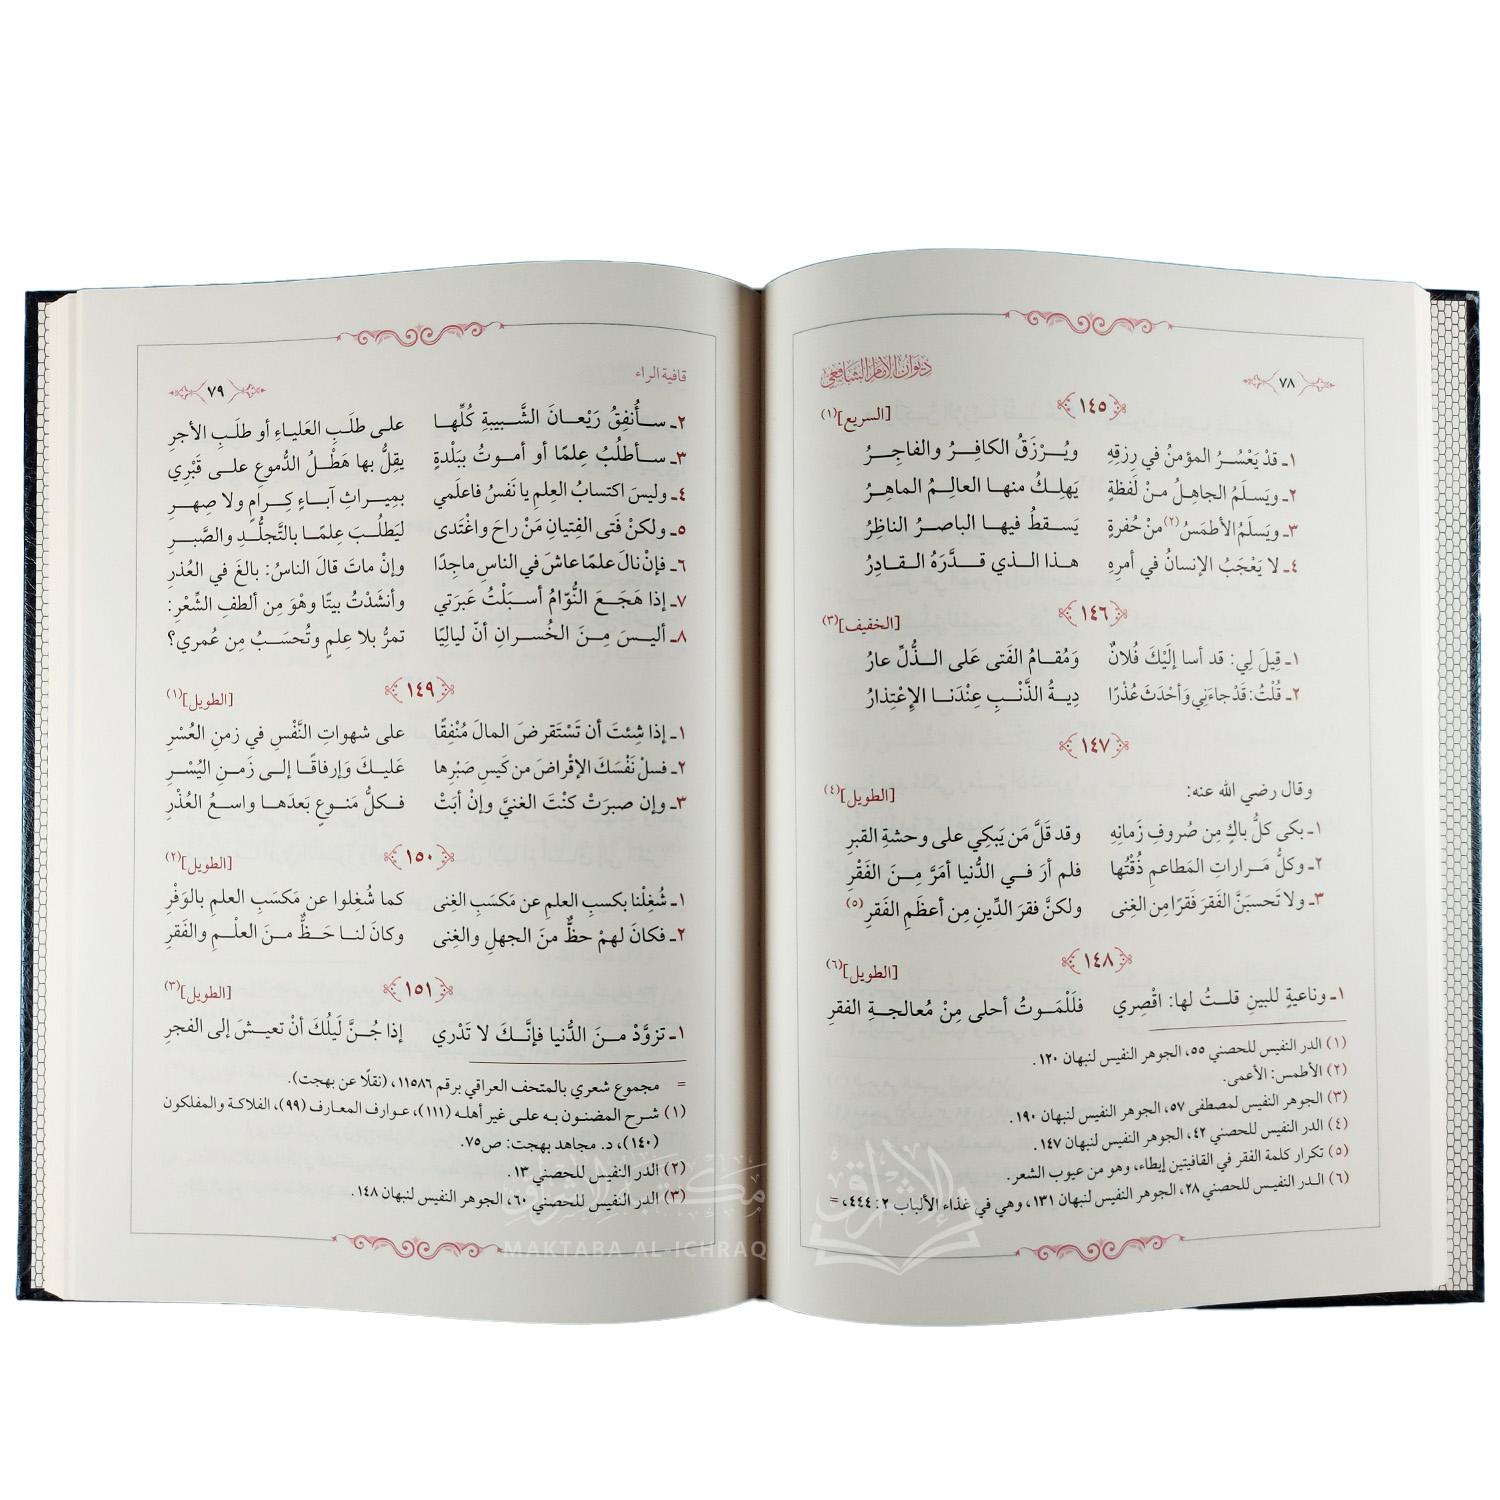 ٧٨
ديوان الإمام الشافعي
١٤٥
[السريع](١)
١ـ قدْ يَعْسُرُ المؤمنُ في رِزقِهِ ويُرْزَقُ الكافِرُ والفاجِرُ
٢ـ ويَسلَمُ الجاهِلُ منْ لَفظةٍ يَهلِكُ منها العالِمُ الماهِرُ
٣ـ ويَسلمُ الأطمَسُ(٢) منْ حُفرةٍ يَسقطُ فيها الباصرُ الناظِرُ
٤ـ لا يَعْجَبُ الإنسانُ في أمرِهِ هذا الذي قدَّرَهُ القادِرُ
١٤٦
[الخفيف](٣)
١ـ قِيلَ لِي: قد أسا إلَيْكَ فُلانٌ وَمُقامُ الفَتى عَلى الذُّلِّ عارُ
٢ـ قُلْتُ: قَدْ جاءَنِي وَأحْدَثَ عُذْرًا دِيةُ الذَّنْبِ عِنْدَنا الإِعْتِذارُ
١٤٧
وقال رضي الله عنه:
[الطويل](٤)
١ـ بكى كلُّ باكٍ مِن صُروفِ زَمانِهِ وقد قَلَّ مَن يَبكِي على وحشةِ القبرِ
٢ـ وكلُّ مَراراتِ المَطاعمِ ذُقْتُها فلم أرَ في الدُّنيا أمَرَّ مِنَ الفَقْرِ
٣ـ ولا تَحسبَنَّ الفَقرَ فَقرًا مِن الغِنى ولكنَّ فقرَ الدِّينِ مِن أعظَمِ الفَقرِ(٥)
١٤٨
[الطويل](٦)
١ـ وناعيةٍ للبينِ قلتُ لها: اقْصِري فلَلْمَوتُ أحلى مِنْ مُعالجةِ الفقرِ
(١) الدر النفيس للحصني ٥٥، الجوهر النفيس لنبهان ١٢٠.
(٢) الأطمس: الأعمى.
(٣) الجوهر النفيس لمصطفى ٥٧، الجوهر النفيس لنبهان ١٩٠.
(٤) الدر النفيس للحصني ٤٢، الجوهر النفيس لنبهان ١٤٧.
(٥) تكرار كلمة الفقر في القافيتين إيطاء، وهو من عيوب الشعر.
(٦) الدر النفيس للحصني ٢٨، الجوهر النفيس لنبهان ١٣١، وهي في غذاء الألباب ٢: ٤٤٤، =
قافية الراء
٧٩
٢ـ سأُنفِقُ رَيْعانَ الشَّبيبةِ كُلِّها على طلَبِ العَلياءِ أو طلَبِ الأجرِ
٣ـ سأطلُبُ عِلمًا أو أموتُ ببَلْدةٍ يقِلُّ بها هَطْلُ الدُّموعِ على قَبْرِي
٤ـ وليسَ اكتسابُ العِلمِ يا نَفسُ فاعلَمي بمِيراثِ آباءٍ كِرامٍ ولا صِهرِ
٥ـ ولكنْ فَتى الفِتيانِ مَنْ راحَ واغْتَدى ليَطلُبَ عِلمًا بالتَّجلُّدِ والصَّبرِ
٦ـ فإنْ نالَ علمًا عاشَ في الناسِ ماجِدًا وإنْ ماتَ قالَ الناسُ: بالغَ في العُذرِ
٧ـ إذا هَجَعَ النُّوّامُ أسبَلْتُ عَبرَتي وأنشَدْتُ بيتًا وهْوَ مِن ألطفِ الشِّعْرِ:
٨ـ أليسَ مِنَ الخُسرانِ أنّ ليالِيًا تمرُّ بلا عِلمٍ وتُحسَبُ مِن عُمري؟
١٤٩
[الطويل](١)
١ـ إذا شِئتَ أن تَسْتَقرضَ المالَ مُنْفِقًا على شهواتِ النَّفْسِ في زمنِ العُسْرِ
٢ـ فسلْ نَفْسَكَ الإقْراضَ من كَيسِ صَبْرِها عَليكَ وَإرفاقًا إلى زَمنِ اليُسْرِ
٣ـ وإن صبرَتْ كنْتَ الغنيَّ وإنْ أبَتْ فكلُّ مَنوعٍ بَعدَها واسعُ العُذْرِ
١٥٠
[الطويل](٢)
١ـ شُغِلْنا بكسبِ العلمِ عن مَكسَبِ الغِنى كما شُغِلوا عن مَكسَبِ العلمِ بالوَفْرِ
٢ـ فكانَ لهمْ حظٌّ منَ الجهلِ والغِنى وكانَ لنا حَظٌّ منَ العلْمِ والفَقرِ
١٥١
[الطويل](٣)
١ـ تزوَّدْ منَ الدُّنيا فإنَّكَ لا تَدْري إذا جُنَّ لَيلُكَ أنْ تعيشَ إلى الفجرِ
= مجموع شعري بالمتحف العراقي برقم ١١٥٨٦، (نقلًا عن بهجت).
(١) شرح المضنون به على غير أهله (١١١)، عوارف المعارف (٩٩)، الفلاكة والمفلكون
(١٤٠)، د. مجاهد بهجت: ص٧٥.
(٢) الدر النفيس للحصني ١٣.
(٣) الدر النفيس للحصني ٦٠، الجوهر النفيس لنبهان ١٤٨.
مكتبة الإشراق
MAKTABA AL-ICHRAQ
الإشراق